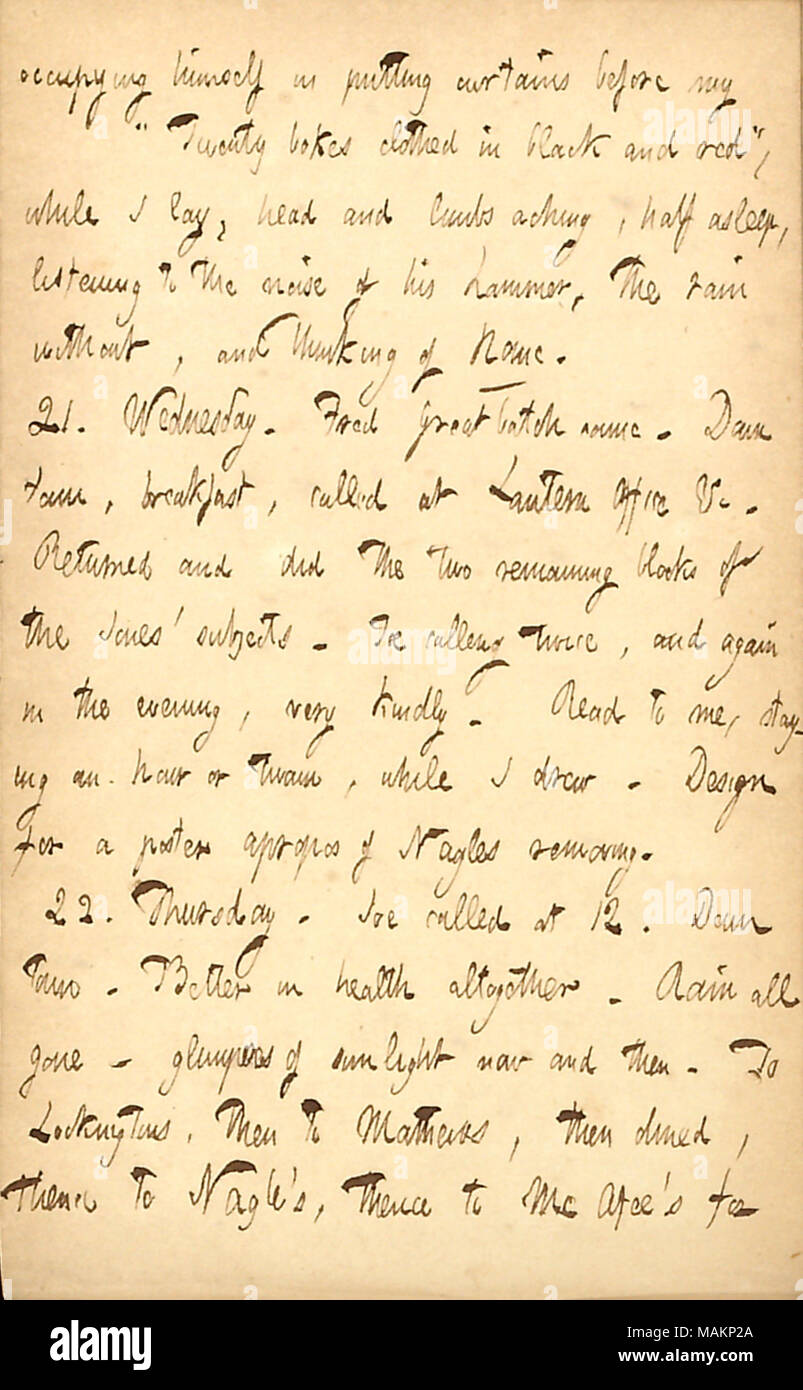 occupying himself in putting curtains before my
"Twenty bokes clothed in black and red",
while I lay, head and limbs aching, half asleep,
listening to the noise of his hammer, the rain
without, and thinking of Home.
21. Wednesday. Fred Greatbatch came. Down
town, breakfast, called at Lantern Office &c.
Returned and did the two remaining blocks of
the Jones' subjects. Joe calling twice, and again
in the evening, very kindly. Read to me, stay-
ing an hour or twain, while I drew. Design
for a poster apropos of Nagles removing.
22. Thursday. Joe called at 12. Down
town. Better in health altogether. Rain all
gone - glimpses of sun light now and then. To
Lockingtons, then to Mathews, then dined,
thence to Nagle's, thence to Mc Afee's for
alamy
Image ID: MAKP2A
www.alamy.com